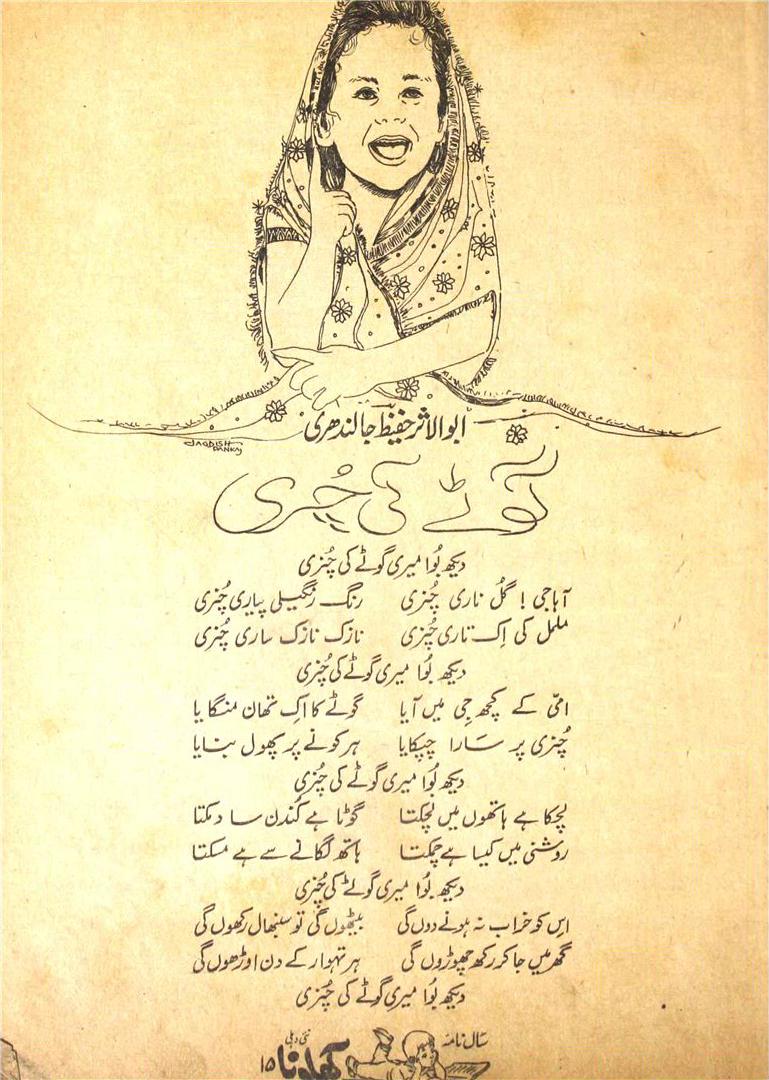 JAGDISH
PANKAJ
ابوالاثر حفیظ جالندھری
گوٹے کی چُنری
دیکھ بُوا میری گوٹے کی چُنری
آہا جی ! گُل ناری چُنری رنگ رنگیلی پیاری چُنری
ململ کی اِک تاری چُنری نازک نازک ساری چُنری
دیکھ بُوا میری گوٹے کی چُنری
امّی کے کچھ جی میں آیا گوٹے کا اِک تھان منگایا
چُنری پر سَارا چپکایا ہر کونے پر پھول بنایا
دیکھ بُوا میری گوٹے کی چُنری
لچکا ہے ہاتھوں میں لچکتا گوٹا ہے کُندن سا دمکتا
روشنی میں کیسا ہے چمکتا ہاتھ لگانے سے ہے مسکتا
دیکھ بُوا میری گوٹے کی چُنری
اِس کو خراب نہ ہونے دوں گی بیٹھوں گی تو سنبھال رکھوں گی
گھر میں جا کر رکھ چھوڑوں گی ہر تہوار کے دن اوڑھوں گی
دیکھ بُوا میری گوٹے کی چُنری
سَال نامَہ
کھلونا نئی دہلی ۱۵